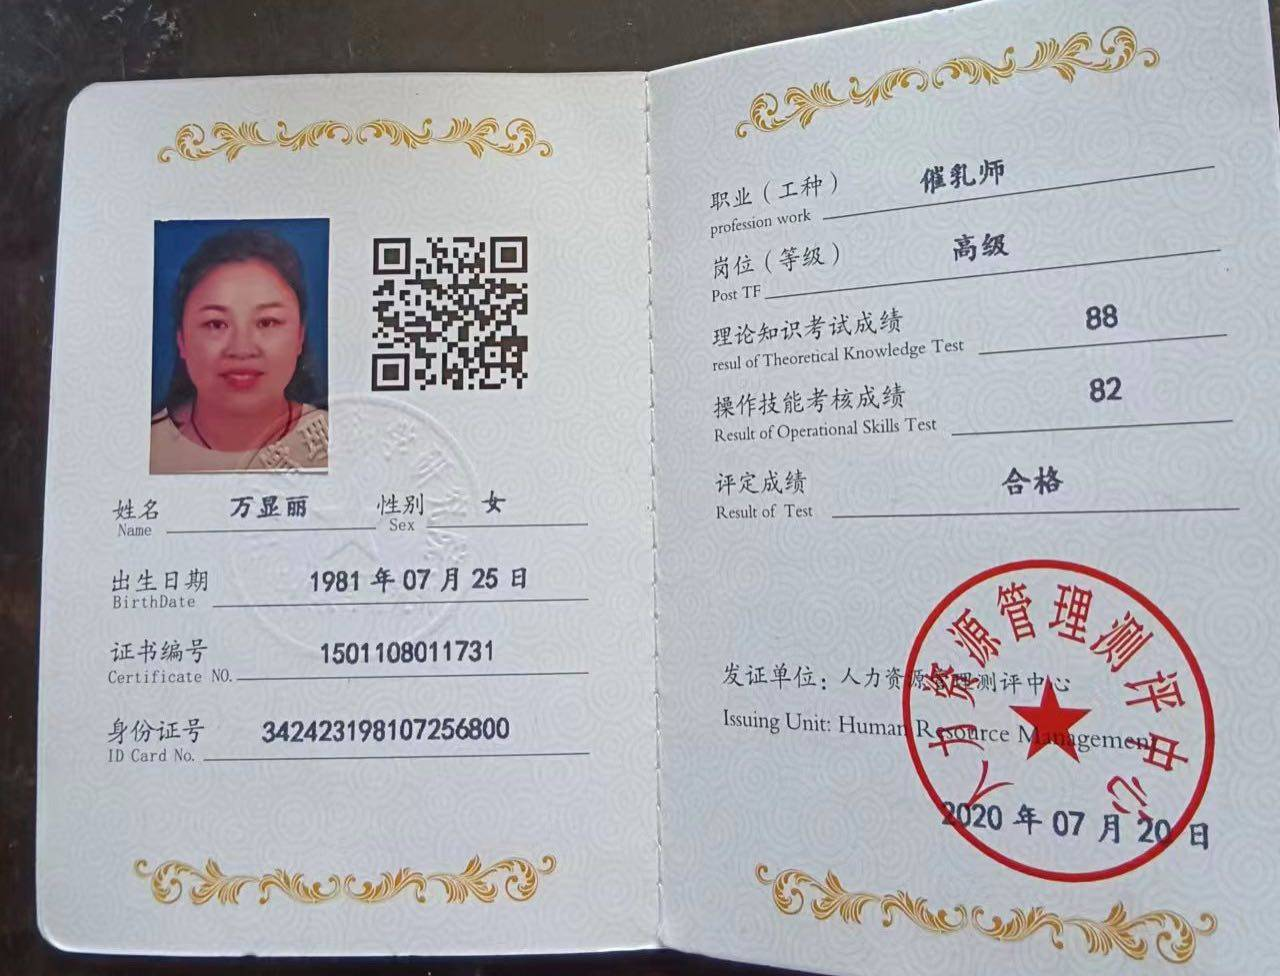 姓名 万显丽 性别 女
Name Sex
出生日期 1981 年 07 月 25 日
BirthDate
证书编号 1501108011731
Certificate NO.
身份证号 342423198107256800
ID Card No.
职业（工种） 催乳师
profession work
岗位（等级） 高级
Post TF
理论知识考试成绩 88
resul of Theoretical Knowledge Test
操作技能考核成绩 82
Result of Operational Skills Test
评定成绩 合格
Result of Test
发证单位：人力资源管理测评中心
Issuing Unit: Human Resource Management
人力资源管理测评中心
2020 年 07 月 20 日